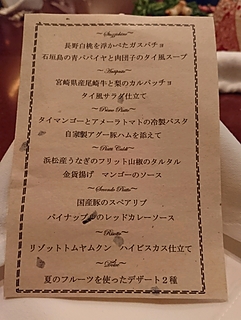 ~ Stuzzichini ~
長野白桃を浮かべたガスパチョ
石垣島の青パパイヤと肉団子のタイ風スープ
~ Antipasto ~
宮崎県産尾崎牛と梨のカルパッチョ
タイ風サラダ仕立て
~ Primo Piatto ~
タイマンゴーとアメーラトマトの冷製パスタ
自家製アグー豚ハムを添えて
~ Piatti Caldi ~
浜松産うなぎのフリット山椒のタルタル
金貨揚げ マンゴーのソース
~ Secondo Piatto ~
国産豚のスペアリブ
パイナップルのレッドカレーソース
~ Risotto ~
リゾットトムヤムクン ハイビスカス仕立て
~ Dolce ~
夏のフルーツを使ったデザート2種